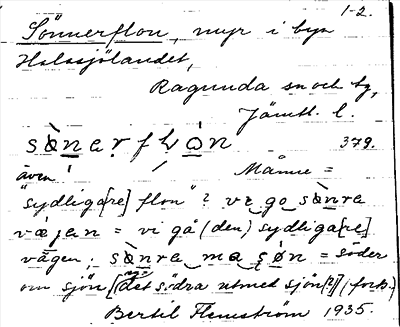 1-2.
Sönnerflon, myr i byn
Halasjölandet,
Ragunda sn och tg,
Jämtl. l.
sònerflón 379.
även Månne =
"sydliga[re] flon"? ve go sønre
vægen = vi gå (den) sydliga[re]
vägen; sønre ma søn = söder
om sjön [det södra utmed sjön[?]] (forts.)
Bertil Flemström 1935.